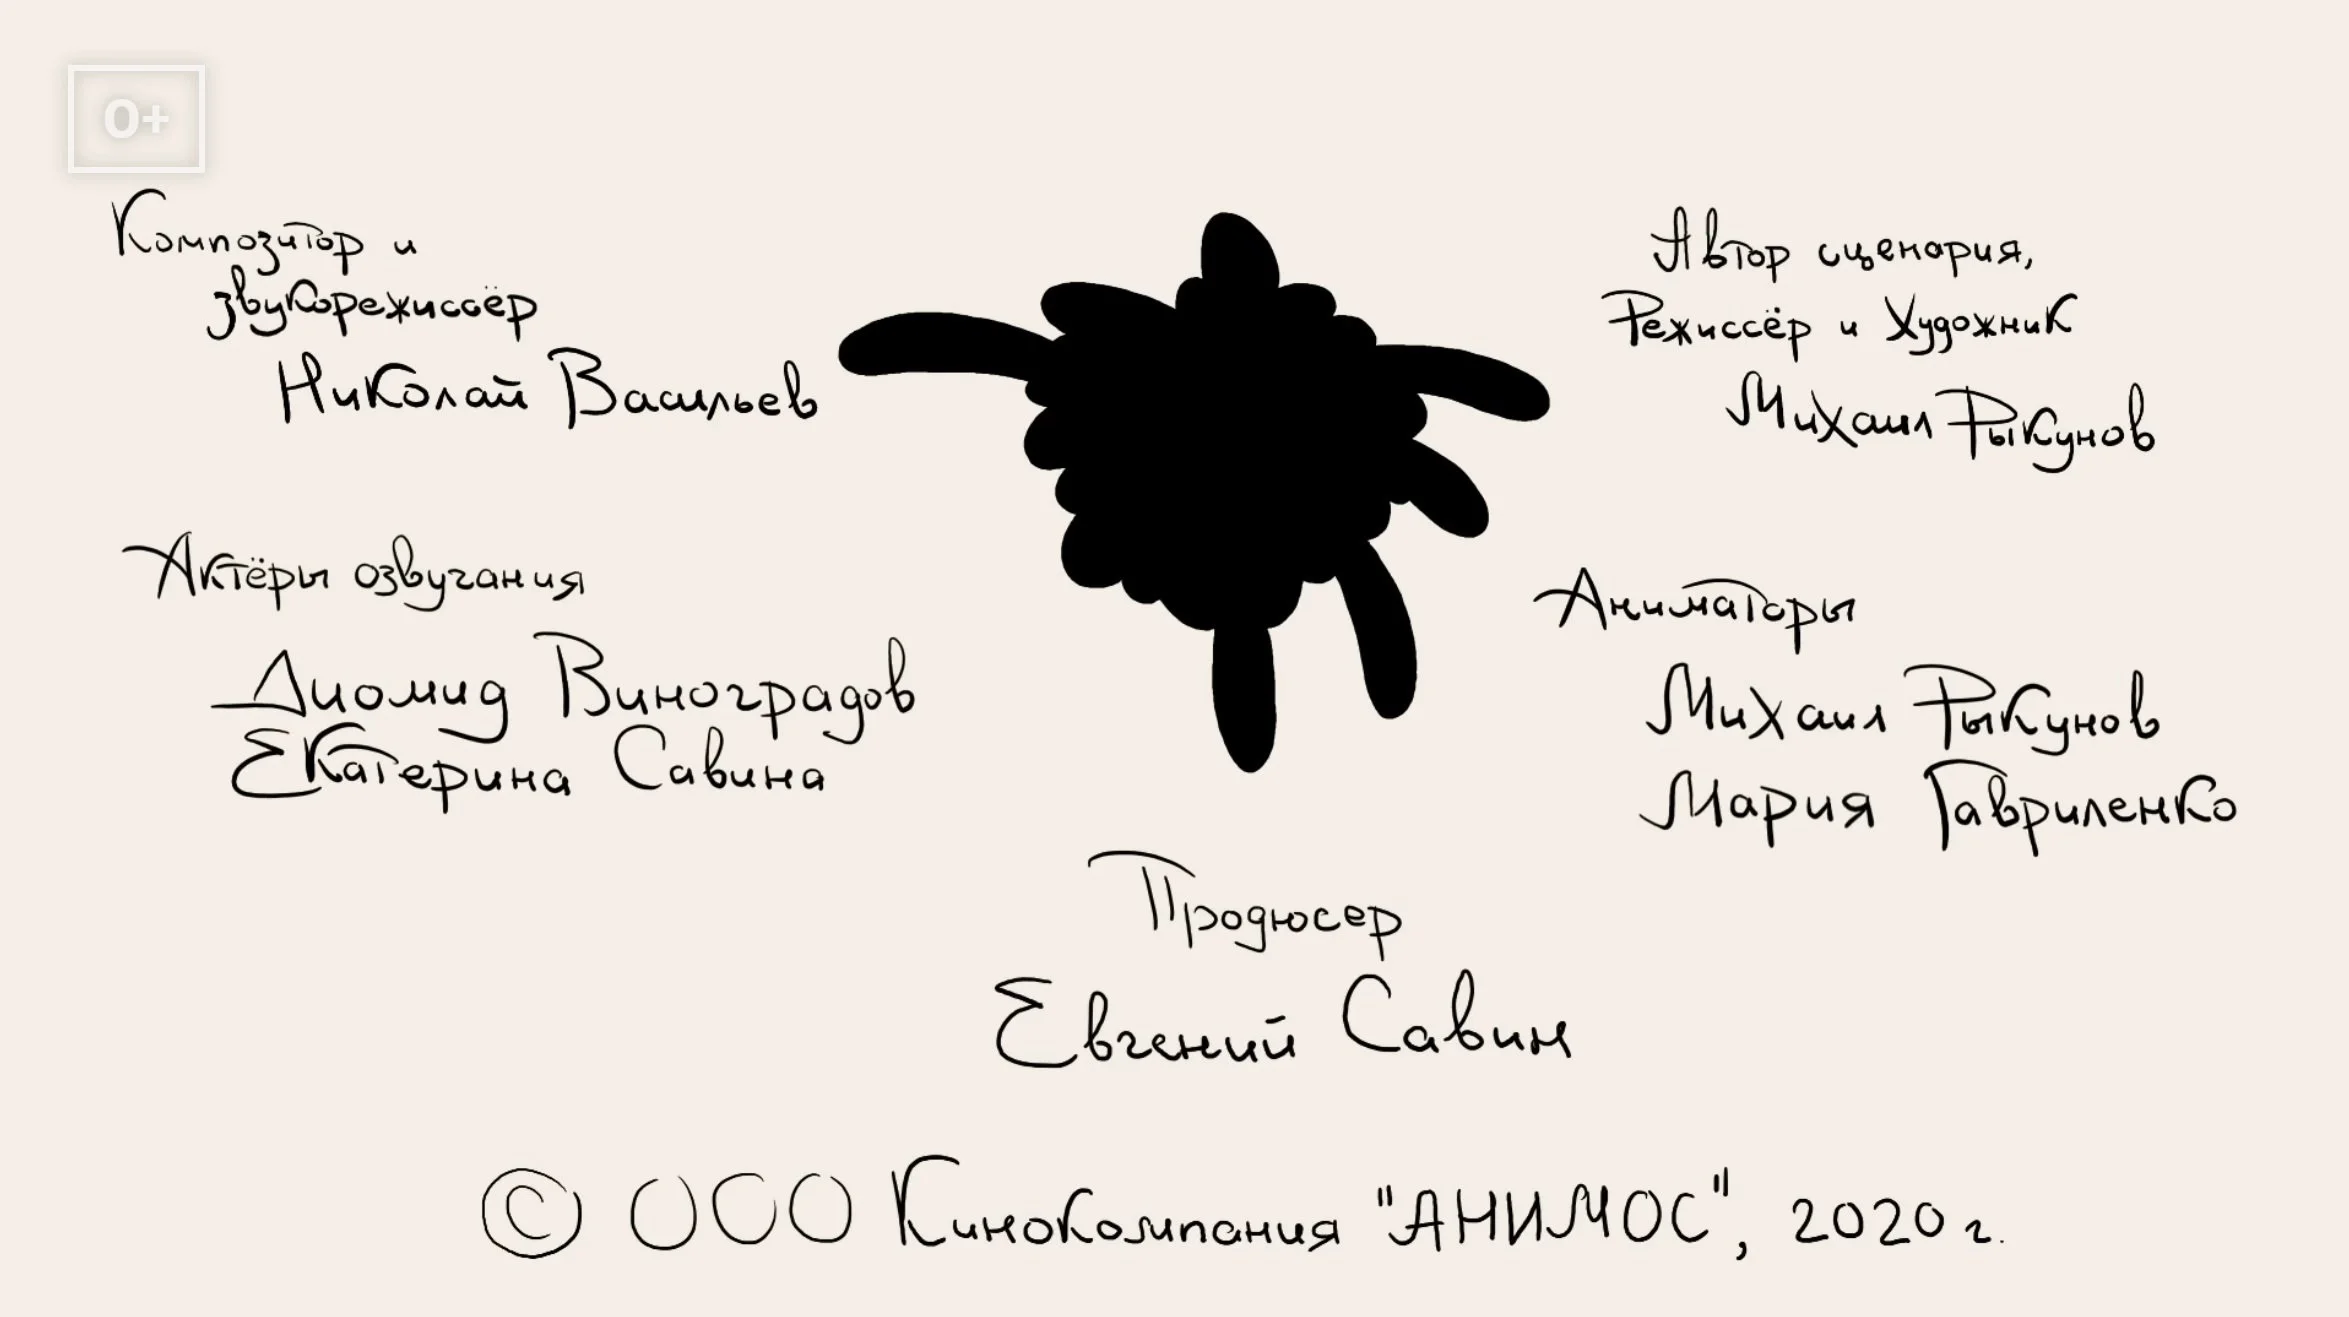 0+
Композитор и
звукорежиссёр
Николай Васильев
Автор сценария,
Режиссёр и Художник
Михаил Рыкунов
Актёры озвучания
Диомид Виноградов
Екатерина Савина
Аниматоры
Михаил Рыкунов
Мария Гавриленко
Продюсер
Евгений Савин
© ООО Кинокомпания "АНИМОС", 2020 г.